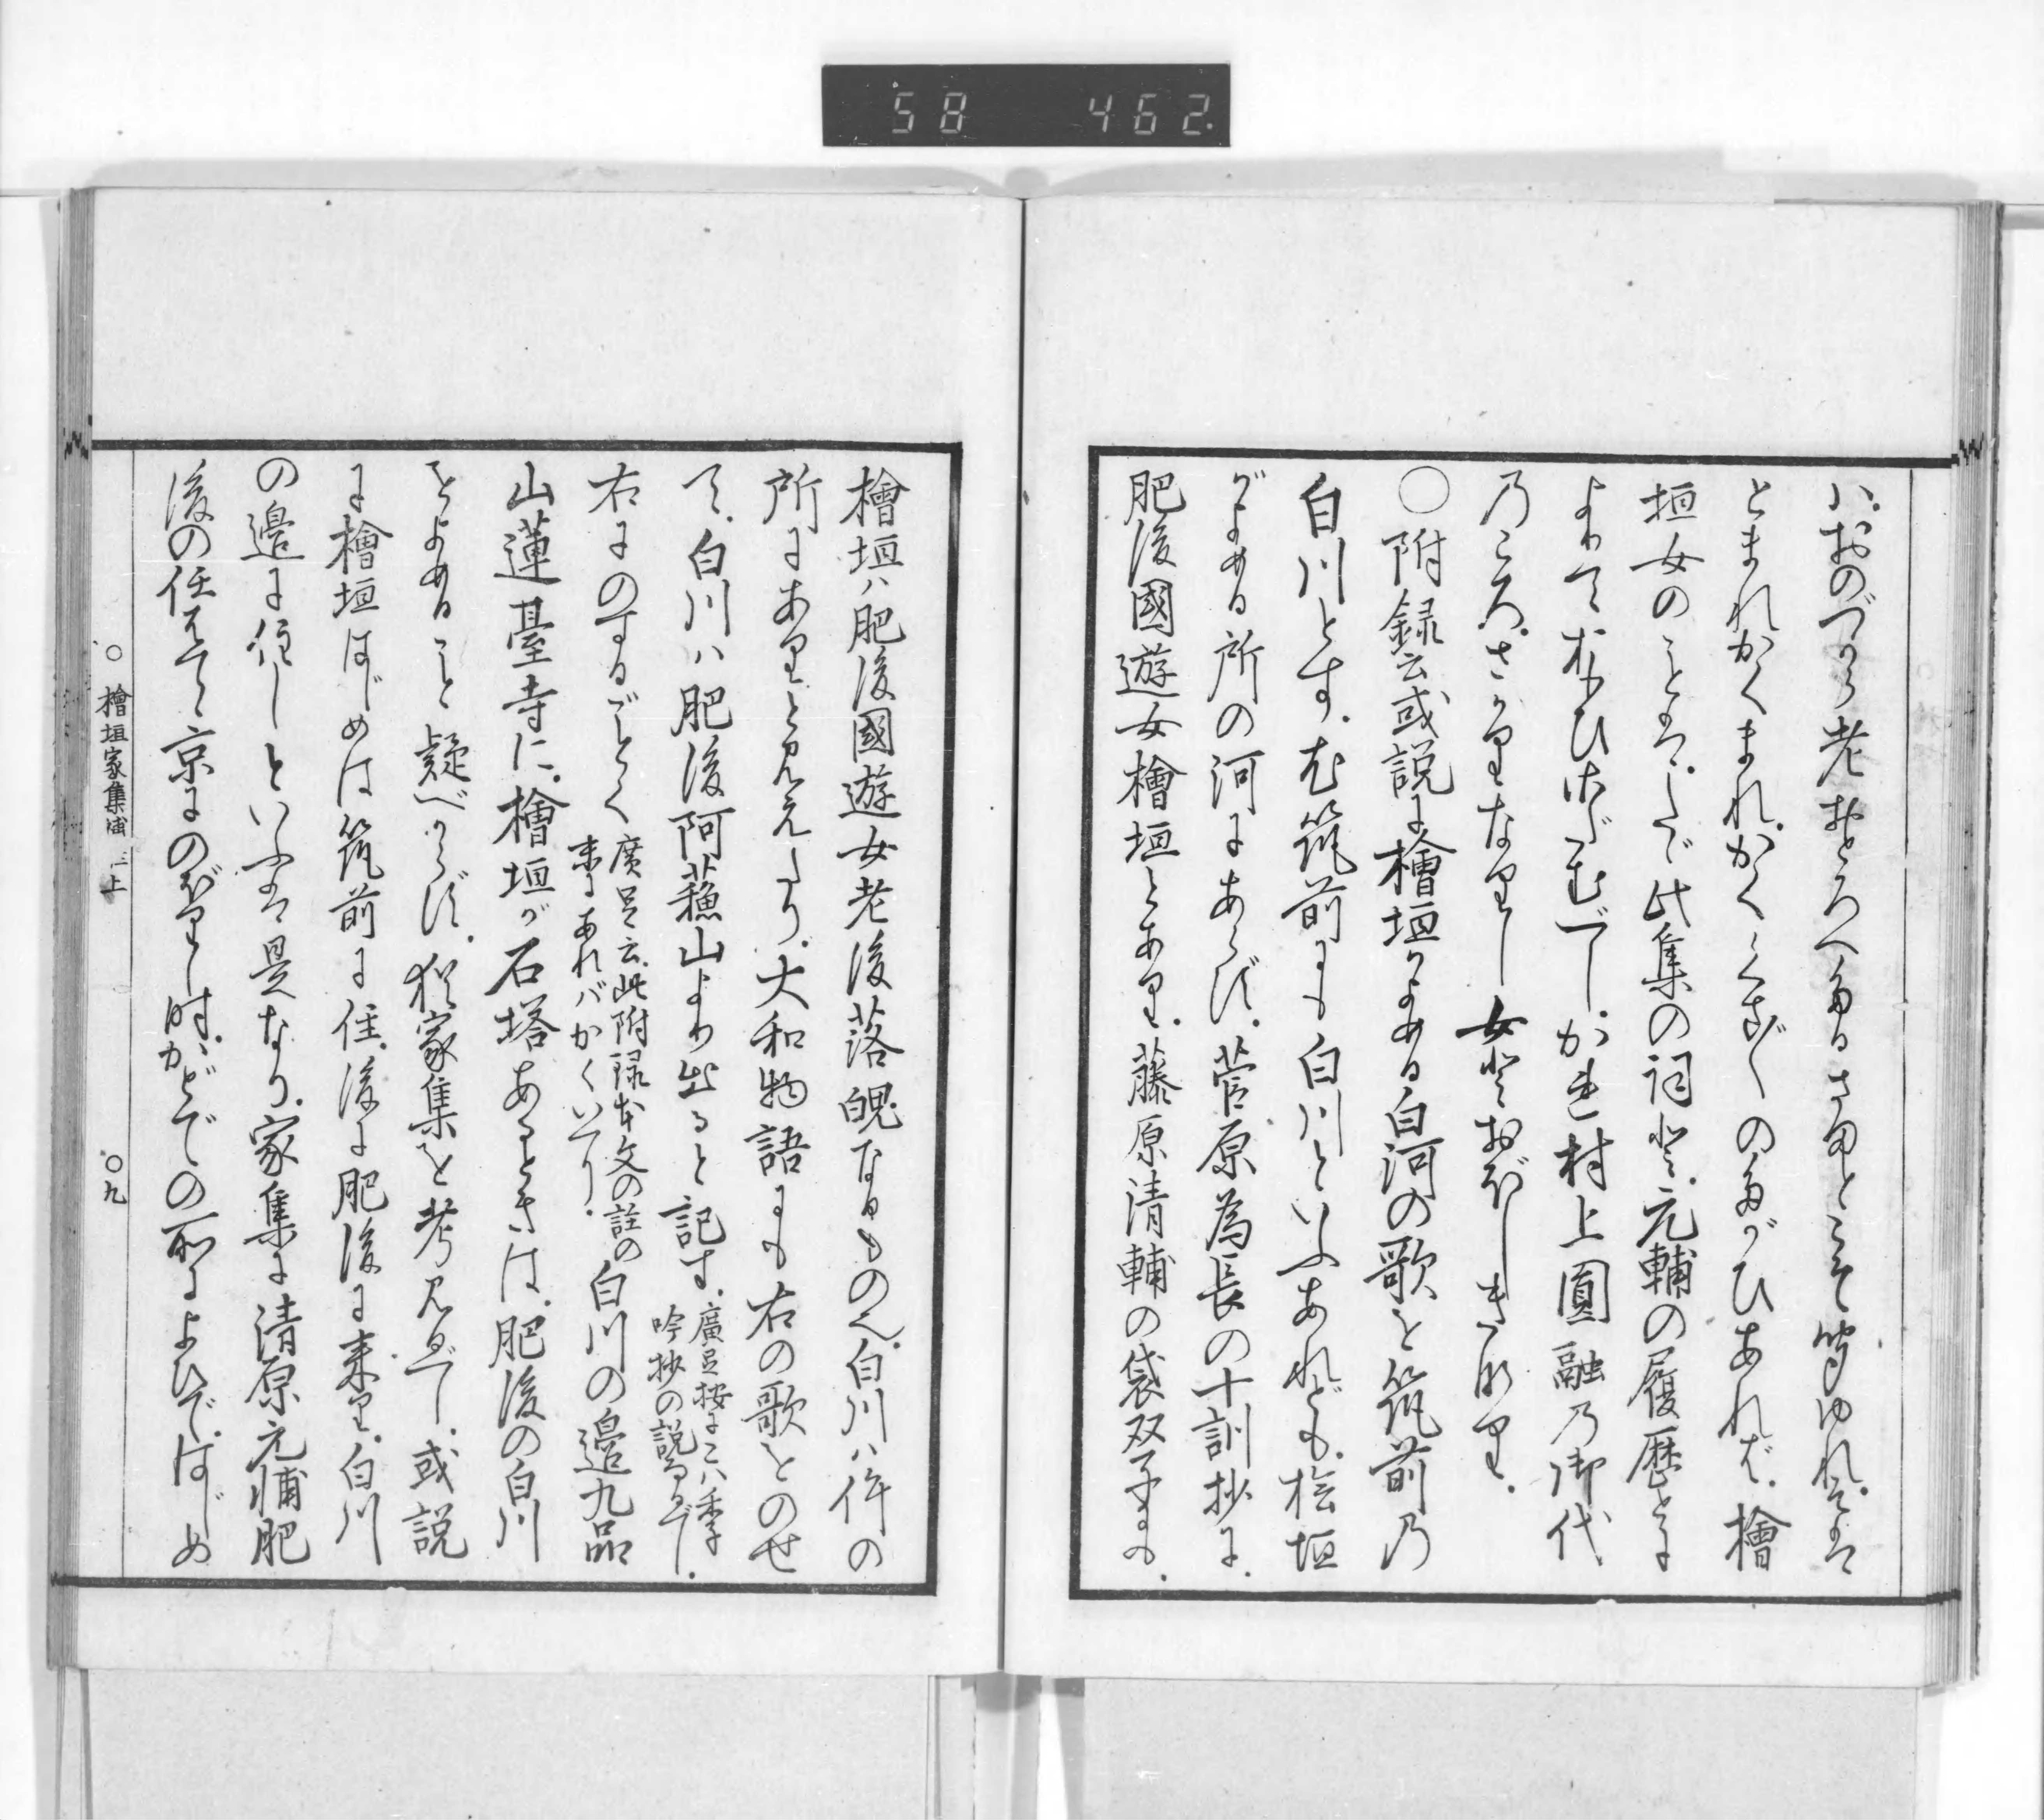 58 462
ハ、おのづから老おとろへたるさまとこそ聞ゆれ、そは
とまれかくまれ、かくくさ〴〵のたがひあれば、檜
垣女のことは、たゞ此集の詞と、元輔の履歴とに
よりておもひさだむべし、かれ村上圓融乃御代
乃ころ、さかりなりし女とおぼしきなり、
○附録云或説に檜垣がよめる白河の歌を筑前乃
白川とす、尤筑前にも白川といふあれども、桧垣
がよめる所の河にあらず、菅原為長の十訓抄に、
肥後國遊女檜垣とあり、藤原清輔の袋双子にも、
檜垣ハ肥後國遊女老後落魄なるもの也、白川ハ件の
所にありと見えたり、大和物語にも右の歌をのせ
て、白川ハ肥後阿蘓山より出ると記す、廣足按にこハ季
吟抄の説なるべし、
右にのするごとく廣足云此附録本文の註の
末にあれバかくいへり、白川の邉九品
山蓮臺寺に、檜垣が石塔あるときは、肥後の白川
をよめること疑べからず、猶家集を考見るべし、或説
に檜垣はじめは筑前に住、後に肥後に来り、白川
の邉に住しといふは是なり、家集に清原元輔肥
後の任はてゝ京にのぼりし時、かどでの所によひて、はじめ
○檜垣家集補注 上 ○九